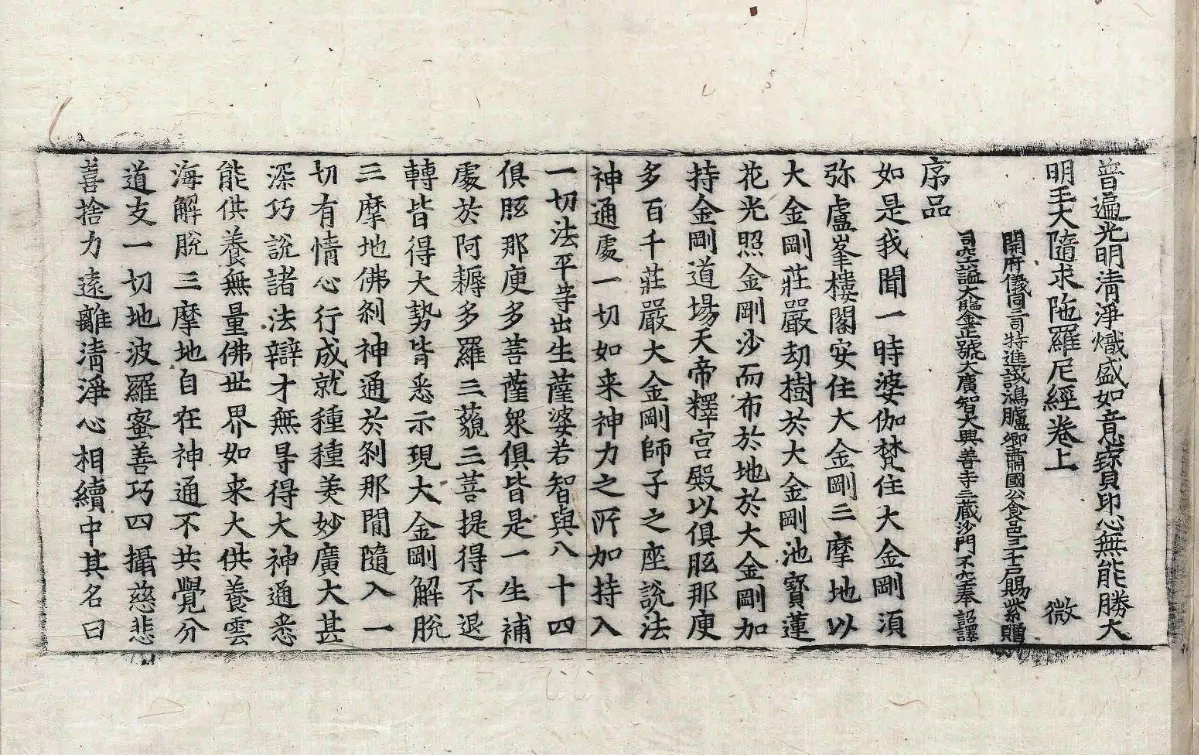 普遍光明清淨熾盛如意寶印心無能勝大
明王大隨求陁羅尼經卷上 微
開府儀同三司特進試鴻臚卿肅國公食邑三千戶賜紫贈
司空謚大鑒正號大廣智大興善寺三藏沙門不空奉 詔譯
序品
如是我聞一時婆伽梵住大金剛湏
弥盧峯樓閣安住大金剛三摩地以
大金剛莊嚴劫樹於大金剛池寶蓮
花光照金剛沙而布於地於大金剛加
持金剛道場天帝釋宮殿以俱胝那庾
多百千莊嚴大金剛師子之座說法
神通處一切如来神力之所加持入
一切法平等出生薩婆若智與八十四
俱胝那庾多菩薩衆俱皆是一生補
處於阿耨多羅三藐三菩提得不退
轉皆得大勢皆悉示現大金剛解脫
三摩地佛刹神通於刹那間隨入一
切有情心行成就種種美妙廣大甚
深巧說諸法辯才無㝵得大神通悉
能供養無量佛世界如来大供養雲
海解脫三摩地自在神通不共覺分
道支一切地波羅蜜善巧四攝慈悲
喜捨力遠離清淨心相續中其名曰